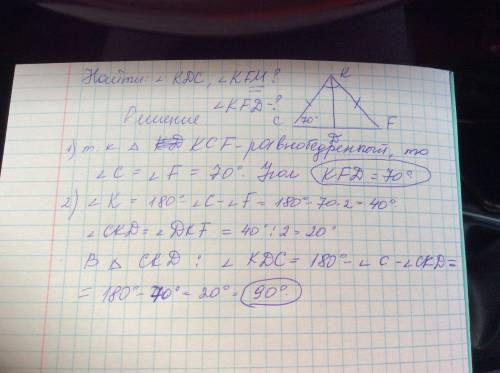 Найти: ∠KDC, ∠KFM?
∠KFD-?
Решение
K
C 70° F
1) т.к △ KCF-равнобедренный, то
∠C = ∠F = 70°. Угол KFD = 70°
2) ∠K = 180° - ∠C - ∠F = 180° - 70·2 = 40°
∠CKD = ∠DKF = 40° : 2 = 20°
В △ CKD : ∠KDC = 180° - ∠C - ∠CKD =
= 180° - 70° - 20° = 90°